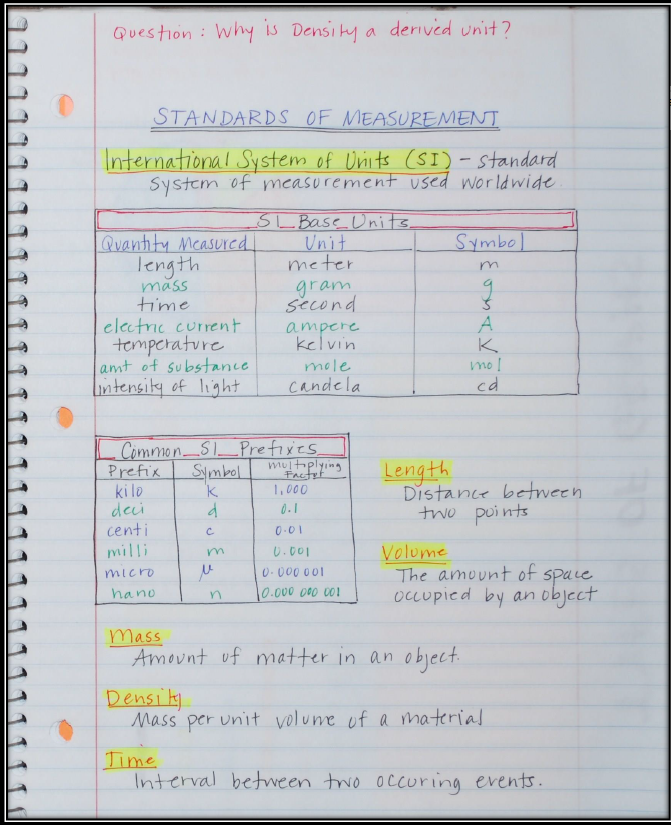 Question: Why is Density a derived unit?
STANDARDS OF MEASUREMENT
International System of Units (SI) - standard
system of measurement used worldwide.
SI Base Units
Quantity Measured Unit Symbol
length meter m
mass gram g
time second s
electric current ampere A
temperature kelvin K
amt of substance mole mol
intensity of light candela cd
Common SI Prefixes
Prefix Symbol multiplying
Factor
kilo k 1,000
deci d 0.1
centi c 0.01
milli m 0.001
micro μ 0.000 001
nano n 0.000 000 001
Length
Distance between
two points
Volume
The amount of space
occupied by an object
Mass
Amount of matter in an object.
Density
Mass per unit volume of a material
Time
Interval between two occuring events.